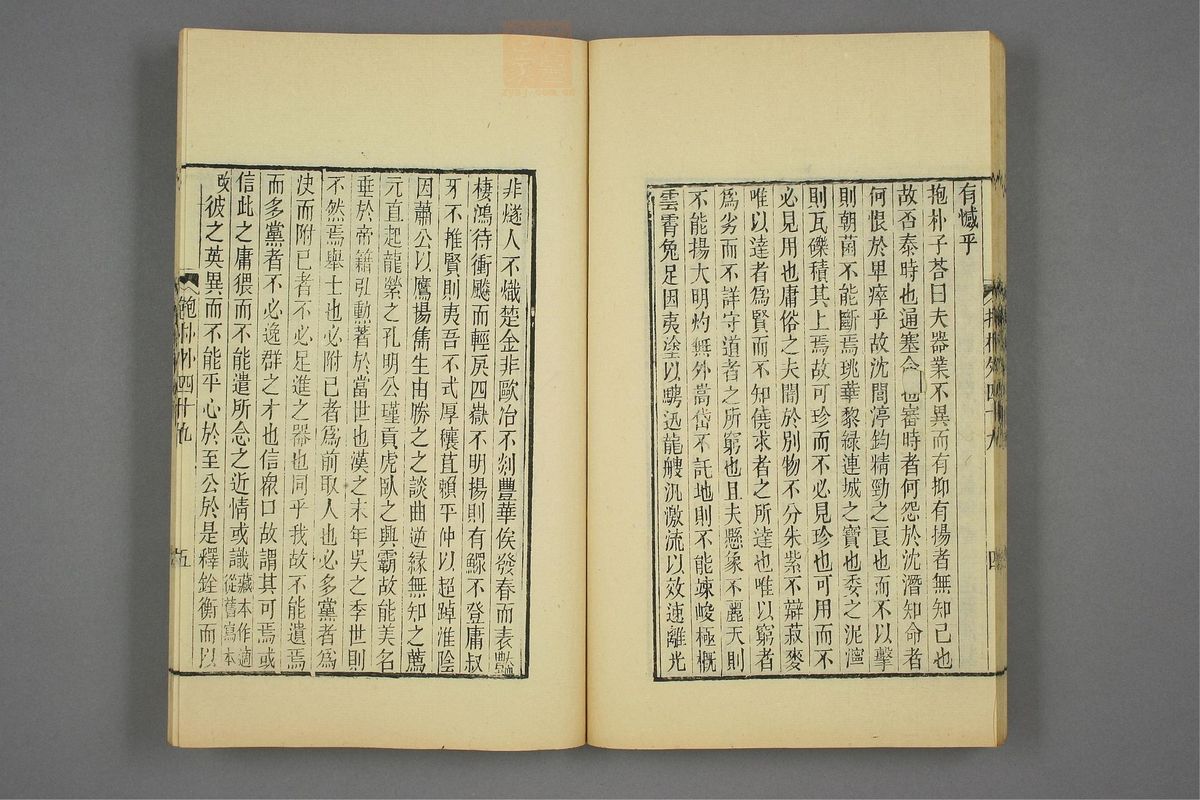 有憾乎
抱朴子荅曰夫器業不異而有抑有揚者無知己也
故否泰時也通塞命也審時者何怨於沈潛知命者
何恨於卑瘁乎故沈閭渟鈞精勁之良也而不以擊
則朝菌不能斷焉珧華黎綠連城之寶也委之泥濘
則瓦礫積其上焉故可珍而不必見珍也可用而不
必見用也庸俗之夫闇於別物不分朱紫不辯菽麥
唯以達者爲賢而不知僥求者之所達也唯以窮者
爲劣而不詳守道者之所窮也且夫懸象不麗天則
不能揚大明灼無外嵩岱不託地則不能竦峻極概
雲霄兔足因夷塗以騁迅龍艘汎激流以效速離光
四
非燧人不熾楚金非歐冶不剡豐華俟發春而表豔
棲鴻待衝飈而輕戾四嶽不明揚則有鰥不登庸叔
牙不推賢則夷吾不式厚穰苴賴平仲以超踔淮陰
因蕭公以鷹揚雋生由勝之之談曲逆緣無知之薦
元直起龍縈之孔明公瑾貢虎臥之興霸故能美名
垂於帝籍引勳著於當世也漢之末年吳之季世則
不然焉舉士也必附己者爲前取人也必多黨者爲
決而附己者不必足進之器也同乎我故不能遺焉
而多黨者不必逸群之才也信衆口故謂其可焉或
信此之庸猥而不能遣所念之近情或識藏本作適從舊寫本
改彼之英異而不能平心於至公於是釋銓衡而以
抱朴外四十九
五